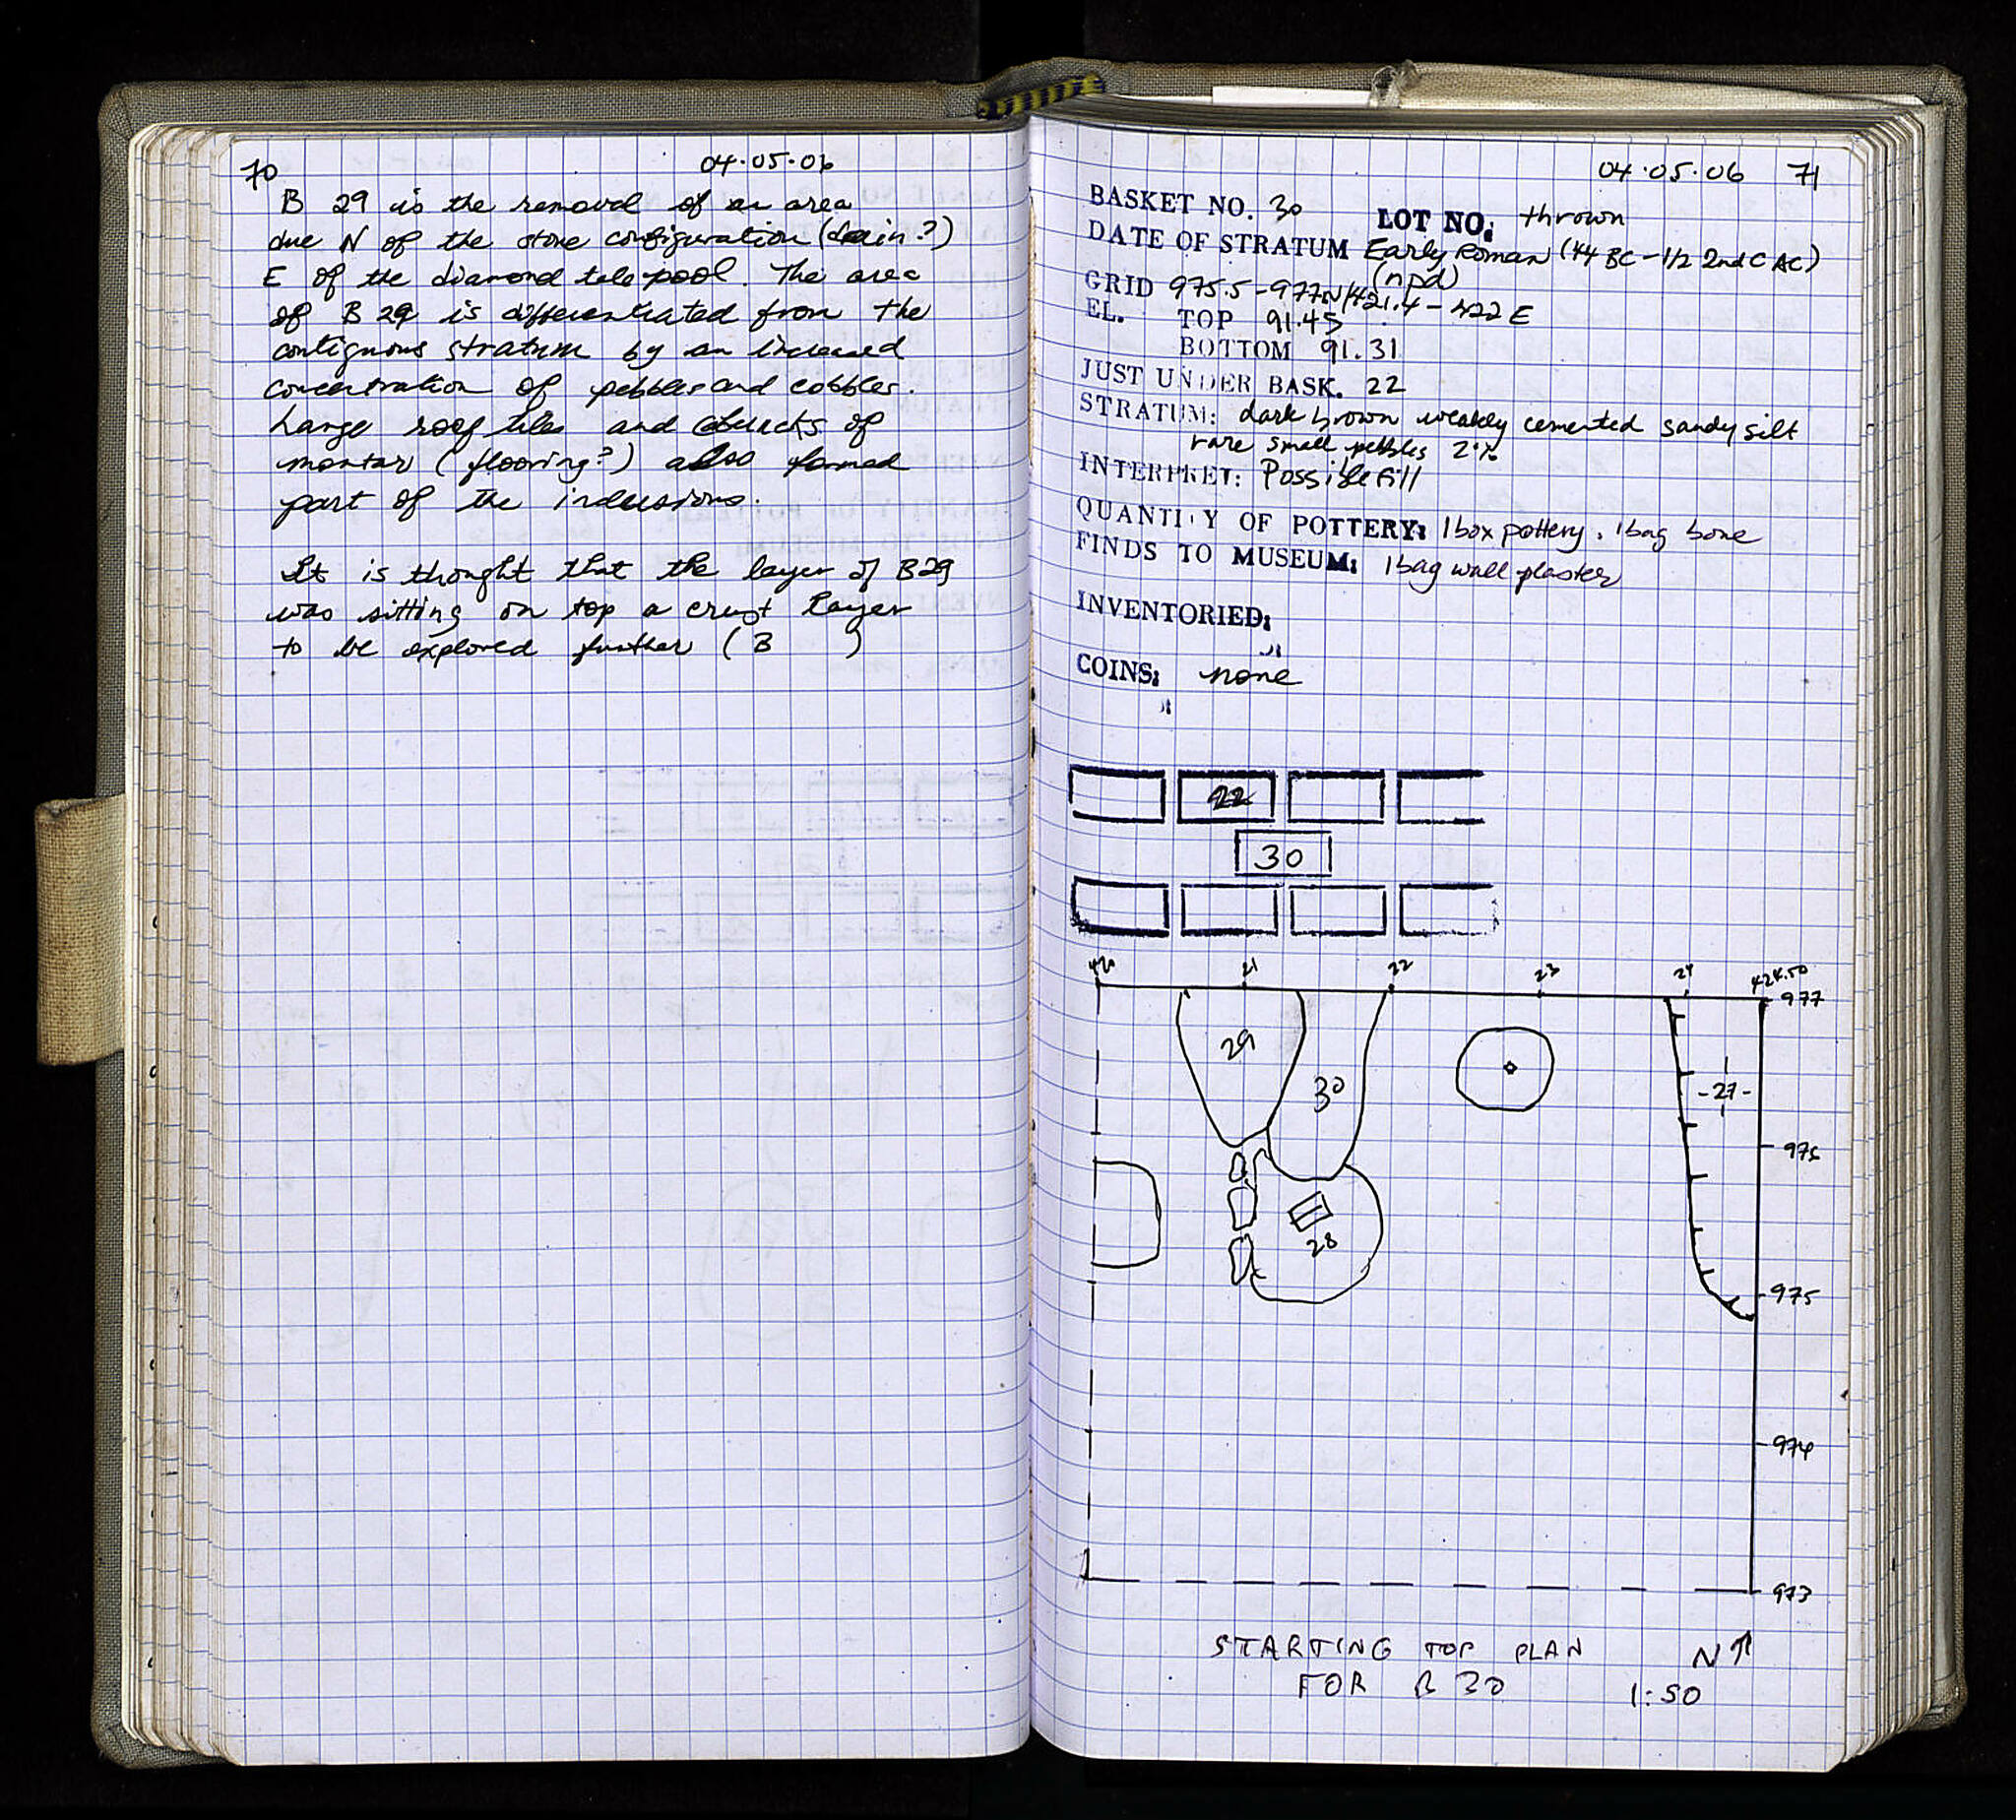 70
04.05.06
B 29 is the removal of an area
due N of the stone configuration (drain?)
E of the diamond tile pool. The area
of B 29 is differentiated from the
contiguous stratum by an increased
concentration of pebbles and cobbles.
Large roof tiles and chunks of
mortar (flooring?) also formed
part of the inclusions.
It is thought that the layer of B29
was sitting on top a crust layer
to be explored further (B )
04.05.06 71
BASKET NO. 30 LOT NO: thrown
DATE OF STRATUM Early Roman (44 BC - 1/2 2nd C AC)
(npd)
GRID 975.5-977N/421.4-422E
EL. TOP 91.45
BOTTOM 91.31
JUST UNDER BASK. 22
STRATUM: dark brown weakly cemented sandy silt
rare small pebbles 2%
INTERPRET: Possible fill
QUANTITY OF POTTERY: 1 box pottery, 1 bag bone
FINDS TO MUSEUM: 1 bag wall plaster
INVENTORIED:
COINS: none
22
30
420 21 22 23 24 424.50
977
29
30
-27-
976
28
975
974
973
STARTING TOP PLAN N
FOR B 30 1:50